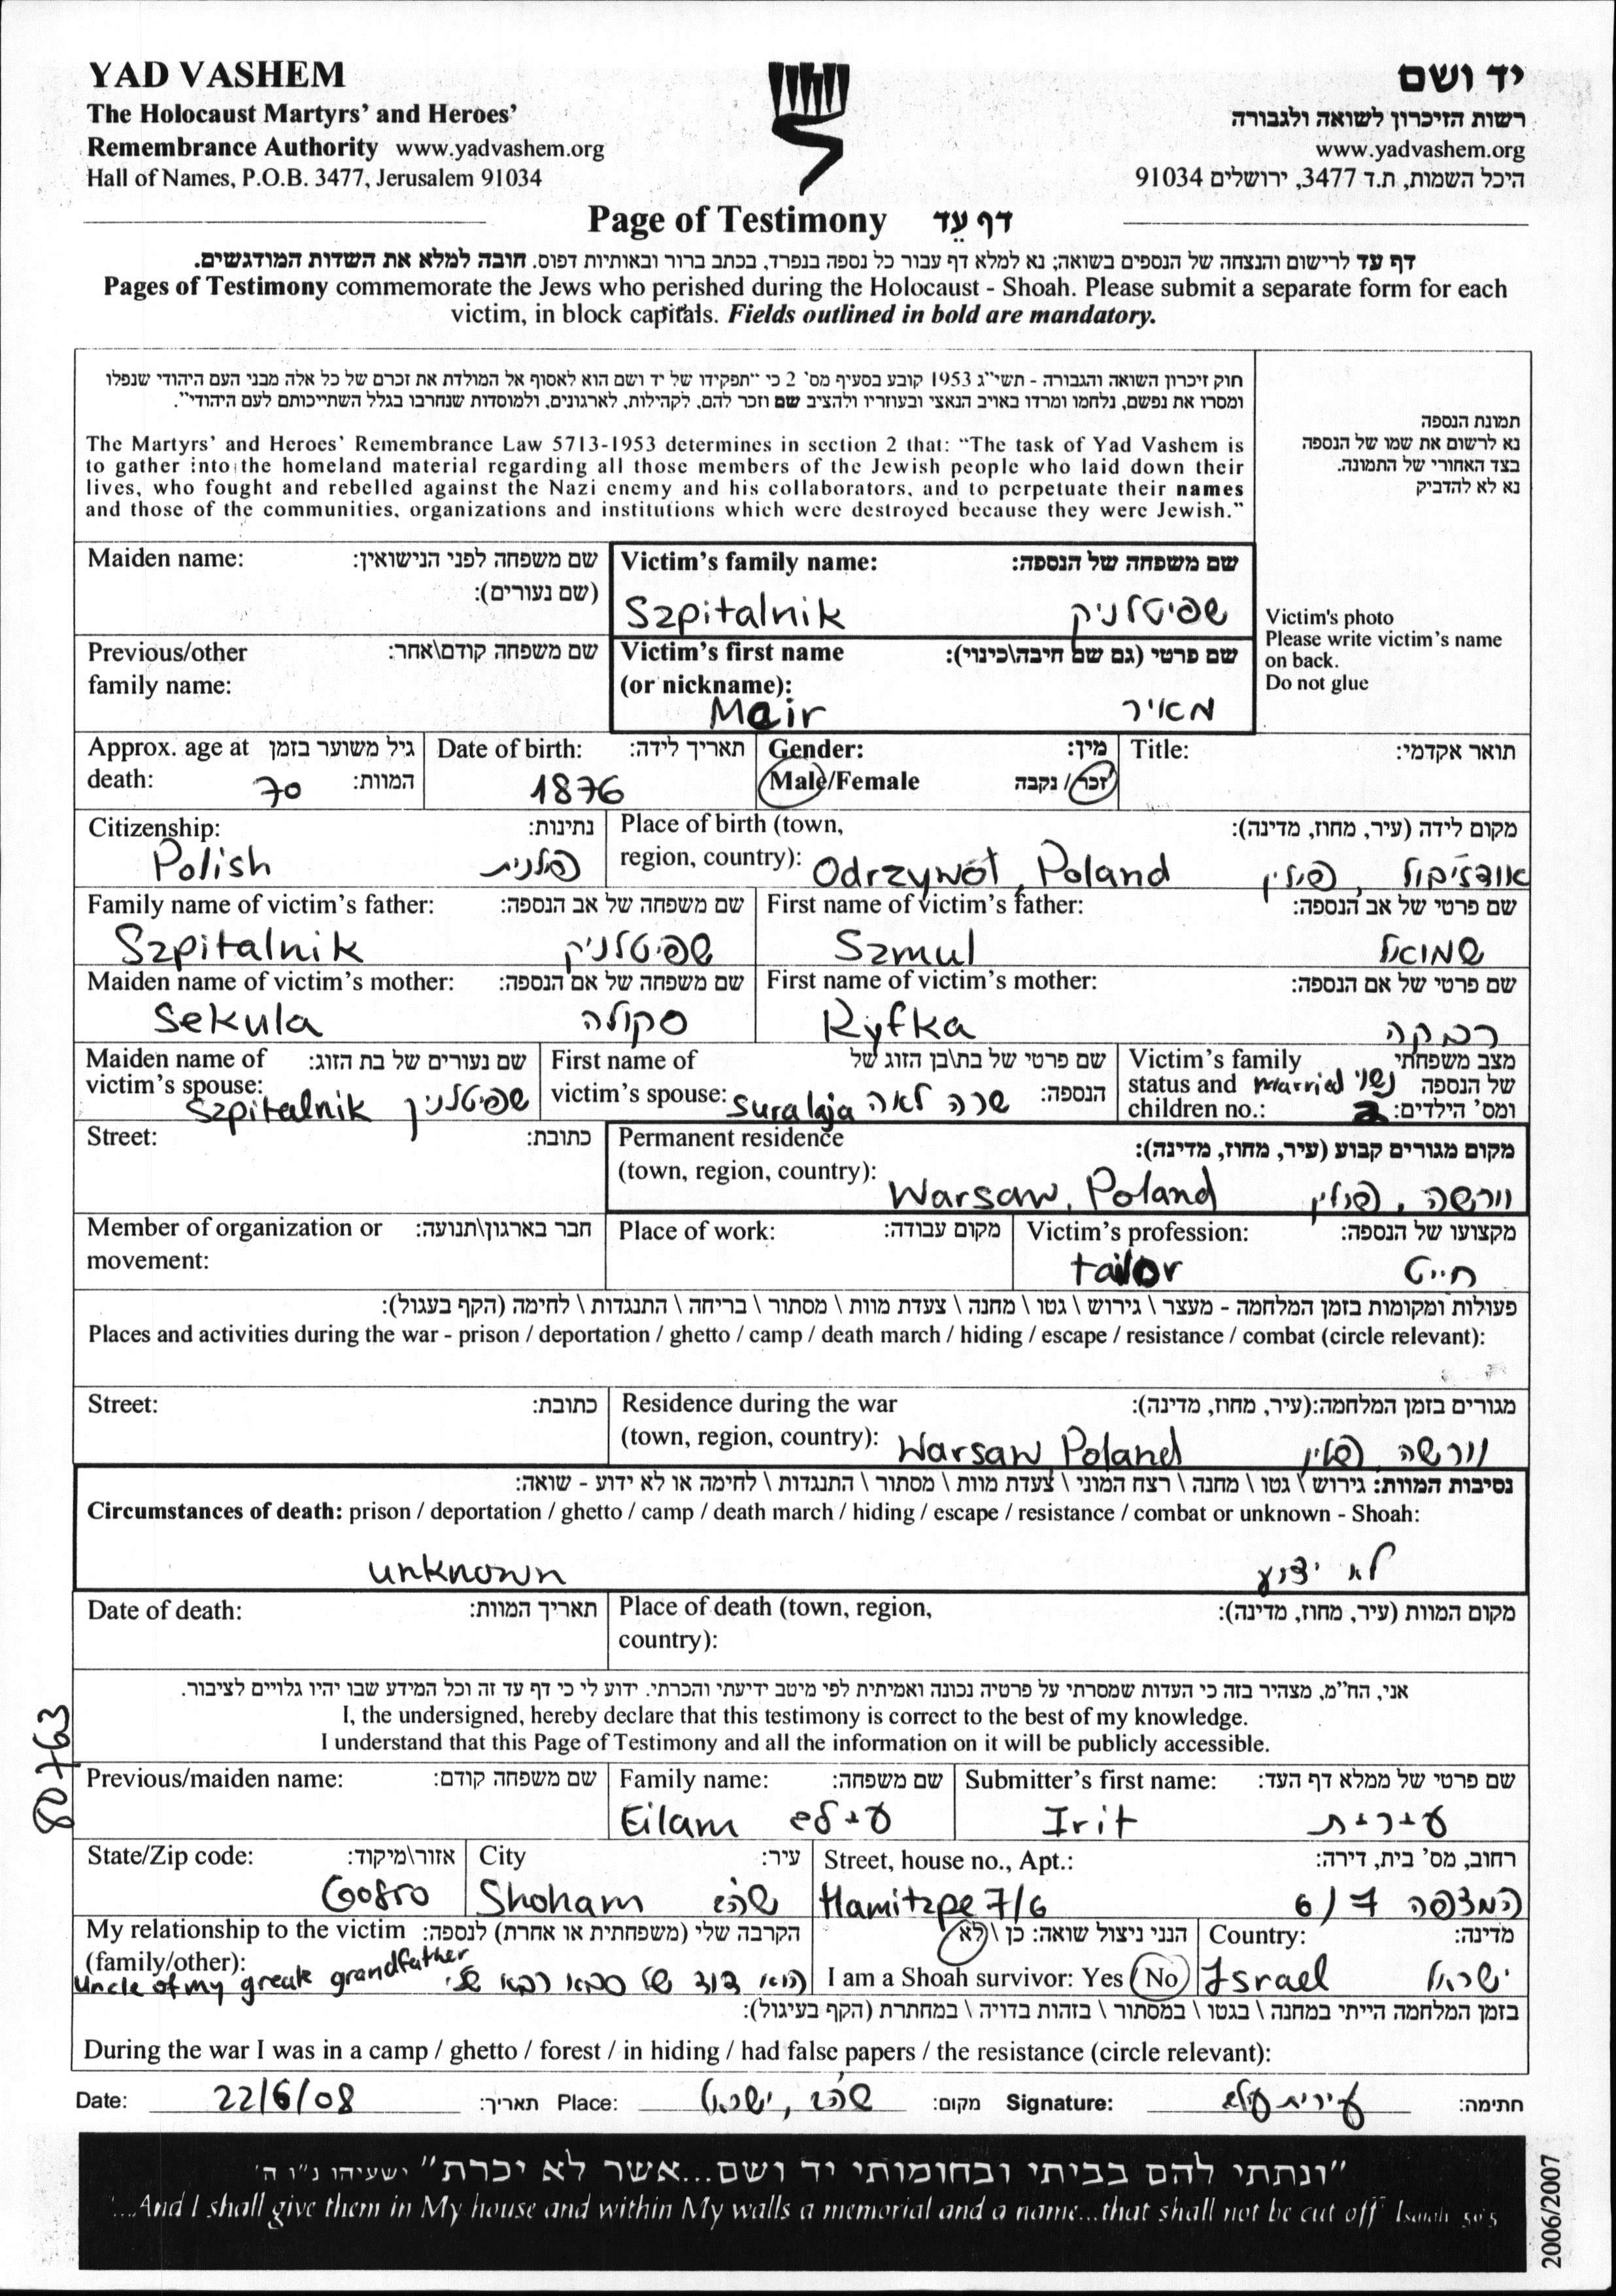 YAD VASHEM
The Holocaust Martyrs' and Heroes'
Remembrance Authority www.yadvashem.org
Hall of Names, P.O.B. 3477, Jerusalem 91034
יד ושם
רשות הזיכרון לשואה ולגבורה
www.yadvashem.org
היכל השמות, ת.ד 3477, ירושלים 91034
Page of Testimony דף עֵד
דף עד לרישום והנצחה של הנספים בשואה; נא למלא דף עבור כל נספה בנפרד, בכתב ברור ובאותיות דפוס. חובה למלא את השדות המודגשים.
Pages of Testimony commemorate the Jews who perished during the Holocaust - Shoah. Please submit a separate form for each
victim, in block capitals. Fields outlined in bold are mandatory.
חוק זיכרון השואה והגבורה - תשי"ג 1953 קובע בסעיף מס' 2 כי "תפקידו של יד ושם הוא לאסוף אל המולדת את זכרם של כל אלה מבני העם היהודי שנפלו
ומסרו את נפשם, נלחמו ומרדו באויב הנאצי ובעוזריו ולהציב שם וזכר להם, לקהילות, לארגונים, ולמוסדות שנחרבו בגלל השתייכותם לעם היהודי".
The Martyrs' and Heroes' Remembrance Law 5713-1953 determines in section 2 that: "The task of Yad Vashem is
to gather into the homeland material regarding all those members of the Jewish people who laid down their
lives, who fought and rebelled against the Nazi enemy and his collaborators, and to perpetuate their names
and those of the communities, organizations and institutions which were destroyed because they were Jewish."
תמונת הנספה
נא לרשום את שמו של הנספה
בצד האחורי של התמונה.
נא לא להדביק
Victim's photo
Please write victim's name
on back.
Do not glue
Maiden name: שם משפחה לפני הנישואין:
(שם נעורים):
Victim's family name: שם משפחה של הנספה:
Szpitalnik שפיטלניק
Previous/other שם משפחה קודם\אחר:
family name:
Victim's first name שם פרטי (גם שם חיבה\כינוי):
(or nickname):
Mair מאיר
Approx. age at גיל משוער בזמן
death: 70 המוות:
Date of birth: תאריך לידה:
1876
Gender: מין:
Male/Female זכר / נקבה
Title: תואר אקדמי:
Citizenship: נתינות:
Polish פולנית
Place of birth (town, מקום לידה (עיר, מחוז, מדינה):
region, country): Odrzywót, Poland אודז'יבול, פולין
Family name of victim's father: שם משפחה של אב הנספה:
Szpitalnik שפיטלניק
First name of victim's father: שם פרטי של אב הנספה:
Szmul שמואל
Maiden name of victim's mother: שם משפחה של אם הנספה:
Sekula סקולה
First name of victim's mother: שם פרטי של אם הנספה:
Ryfka רבקה
Maiden name of שם נעורים של בת הזוג:
victim's spouse: Szpitalnik שפיטלניק
First name of שם פרטי של בת\בן הזוג של
victim's spouse: Sura laja שרה לאה הנספה:
Victim's family מצב משפחתי
status and married נשוי של הנספה
children no.: 2 ומס' הילדים:
Street: כתובת:
Permanent residence מקום מגורים קבוע (עיר, מחוז, מדינה):
(town, region, country): Warsaw, Poland וורשה, פולין
Member of organization or חבר בארגון\תנועה:
movement:
Place of work: מקום עבודה:
Victim's profession: מקצועו של הנספה:
tailor חייט
פעולות ומקומות בזמן המלחמה - מעצר \ גירוש \ גטו \ מחנה \ צעדת מוות \ מסתור \ בריחה \ התנגדות \ לחימה (הקף בעגול):
Places and activities during the war - prison / deportation / ghetto / camp / death march / hiding / escape / resistance / combat (circle relevant):
Street: כתובת:
Residence during the war מגורים בזמן המלחמה:(עיר, מחוז, מדינה):
(town, region, country): Warsaw Poland וורשה, פולין
נסיבות המוות: גירוש \ גטו \ מחנה \ רצח המוני \ צעדת מוות \ מסתור \ התנגדות \ לחימה או לא ידוע - שואה:
Circumstances of death: prison / deportation / ghetto / camp / death march / hiding / escape / resistance / combat or unknown - Shoah:
unknown לא ידוע
Date of death: תאריך המוות:
Place of death (town, region, מקום המוות (עיר, מחוז, מדינה):
country):
אני, הח"מ, מצהיר בזה כי העדות שמסרתי על פרטיה נכונה ואמיתית לפי מיטב ידיעתי והכרתי. ידוע לי כי דף עד זה וכל המידע שבו יהיו גלויים לציבור.
I, the undersigned, hereby declare that this testimony is correct to the best of my knowledge.
I understand that this Page of Testimony and all the information on it will be publicly accessible.
80763
Previous/maiden name: שם משפחה קודם:
Family name: שם משפחה:
Eilam עילם
Submitter's first name: שם פרטי של ממלא דף העד:
Irit עירית
State/Zip code: אזור\מיקוד:
60850
City עיר:
Shoham שהם
Street, house no., Apt.: רחוב, מס' בית, דירה:
Hamitzpe 7/6 המצפה 7/6
My relationship to the victim הקרבה שלי (משפחתית או אחרת) לנספה:
(family/other):
Uncle of my great grandfather הוא דוד של סבא רבא שלי
הנני ניצול שואה: כן \ לא
I am a Shoah survivor: Yes / No
Country: מדינה:
Israel ישראל
בזמן המלחמה הייתי במחנה \ בגטו \ במסתור \ בזהות בדויה \ במחתרת (הקף בעיגול):
During the war I was in a camp / ghetto / forest / in hiding / had false papers / the resistance (circle relevant):
Date: 22/6/08 תאריך: Place: שהם, ישראל מקום: Signature: עירית עילם חתימה:
"ונתתי להם בביתי ובחומותי יד ושם...אשר לא יכרת" ישעיהו נ"ו ה'
"...And I shall give them in My house and within My walls a memorial and a name...that shall not be cut off" Isaiah 56'5
2006/2007